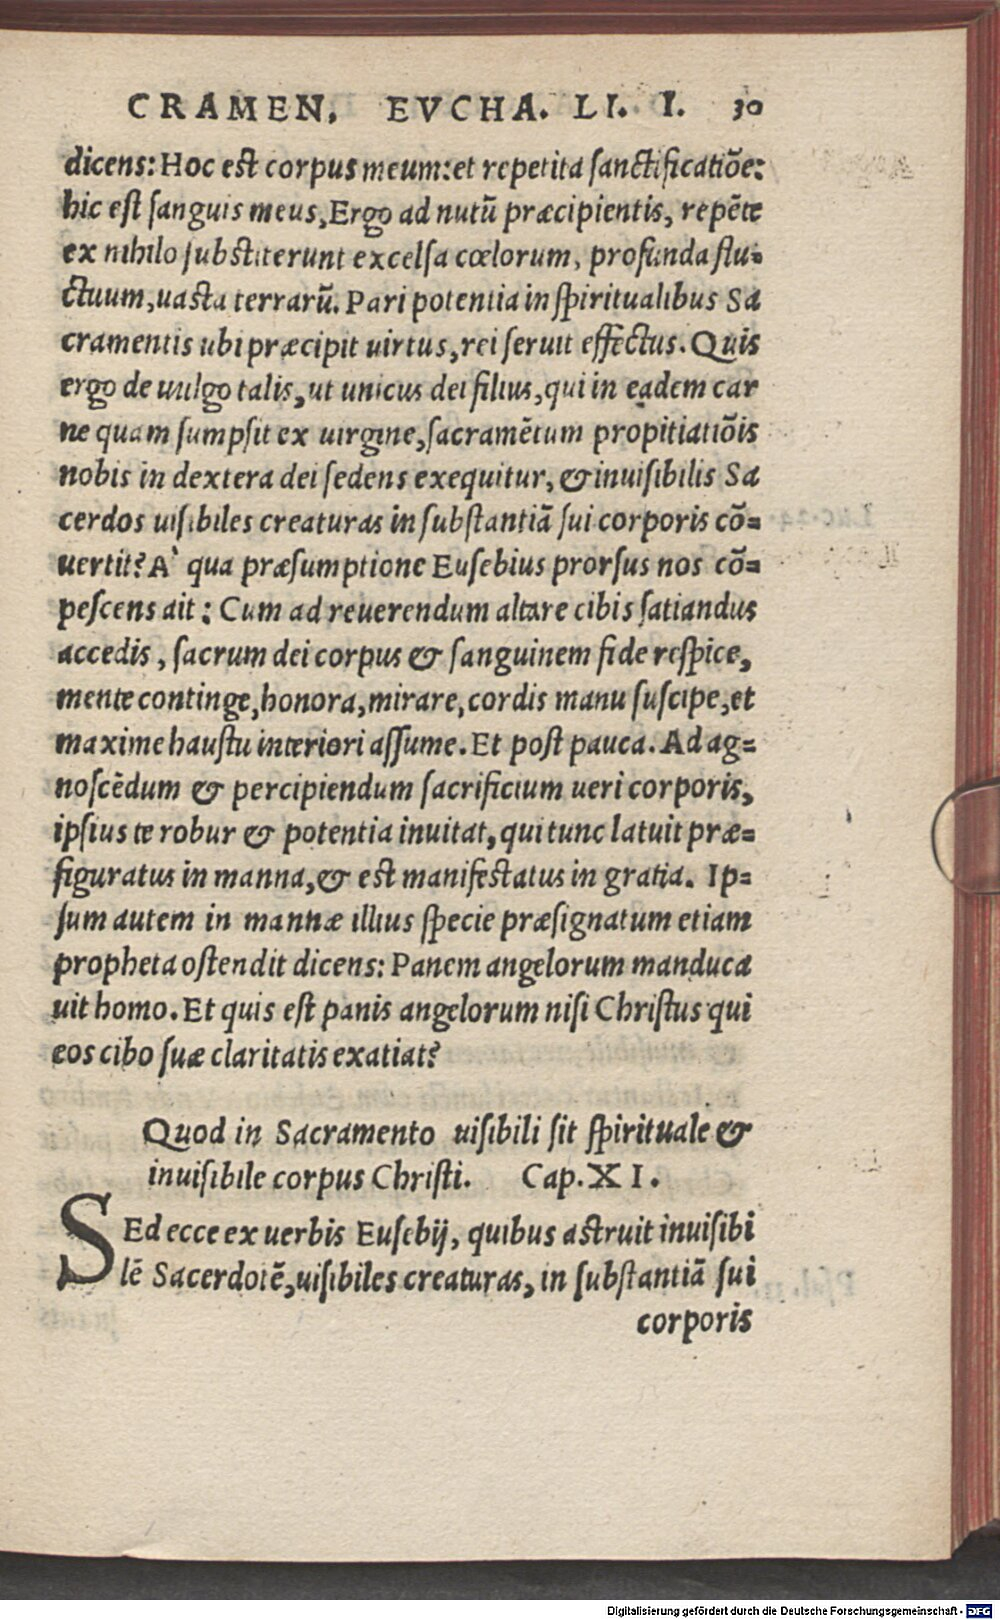 CRAMEN. EVCHA. LI. I. 30
dicens: Hoc est corpus meum: et repetita sanctificatiõe:
hic est sanguis meus, Ergo ad nutũ præcipientis, repẽte
ex nihilo substiterunt excelsa cœlorum, profunda flu-
ctuum, uasta terrarũ. Pari potentia in spiritualibus Sa
cramentis ubi præcipit uirtus, rei seruit effectus. Quis
ergo de uulgo talis, ut unicus dei filius, qui in eadem car
ne quam sumpsit ex uirgine, sacramẽtum propitiatiõis
nobis in dextera dei sedens exequitur, & inuisibilis Sa
cerdos uisibiles creaturas in substantiã sui corporis cõ=
uertit? A` qua præsumptione Eusebius prorsus nos cõ=
pescens ait: Cum ad reuerendum altare cibis satiandus
accedis, sacrum dei corpus & sanguinem fide respice,
mente continge, honora, mirare, cordis manu suscipe, et
maxime haustu interiori assume. Et post pauca. Ad ag=
noscẽdum & percipiendum sacrificium ueri corporis,
ipsius te robur & potentia inuitat, qui tunc latuit præ=
figuratus in manna, & est manifestatus in gratia. Ip=
sum autem in mannæ illius specie præsignatum etiam
propheta ostendit dicens: Panem angelorum manduca
uit homo. Et quis est panis angelorum nisi Christus qui
eos cibo suæ claritatis exatiat?
Quod in Sacramento uisibili sit spirituale &
inuisibile corpus Christi. Cap. XI.
SEd ecce ex uerbis Eusebij, quibus astruit inuisibi
lẽ Sacerdotẽ, uisibiles creaturas, in substantiã sui
corporis
Digitalisierung gefördert durch die Deutsche Forschungsgemeinschaft - DFG